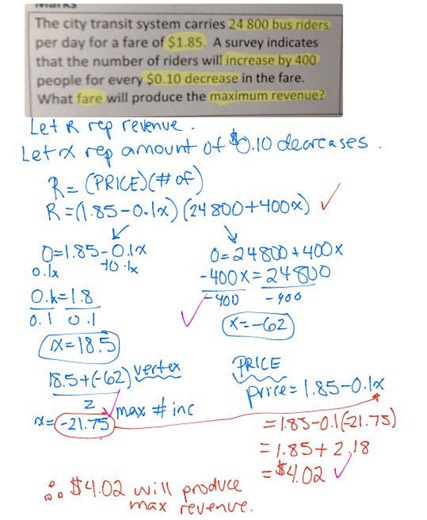 The city transit system carries 24 800 bus riders
per day for a fare of $1.85. A survey indicates
that the number of riders will increase by 400
people for every $0.10 decrease in the fare.
What fare will produce the maximum revenue?
Let R rep revenue.
Let x rep amount of $0.10 decreases.
R = (PRICE)(# of)
R = (1.85-0.1x)(24800+400x)
0=1.85-0.1x
0.1x +0.1x
0.1x=1.8
0.1 0.1
x=18.5
0=24800+400x
-400x=24800
-400 -400
x=-62
18.5+(-62) vertex
2
x=-21.75 max # inc
PRICE
price=1.85-0.1x
=1.85-0.1(-21.75)
=1.85+2.18
=$4.02
∴ $4.02 will produce
max revenue.